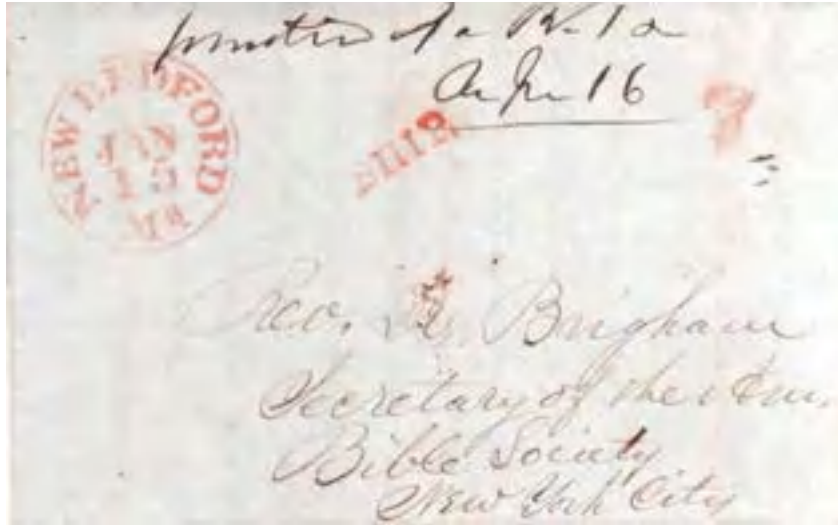 Apr 16
NEW BEDFORD
JAN
15
MS
SHIP
7
Rev. Brigham
Secretary of the Am.
Bible Society
New York City